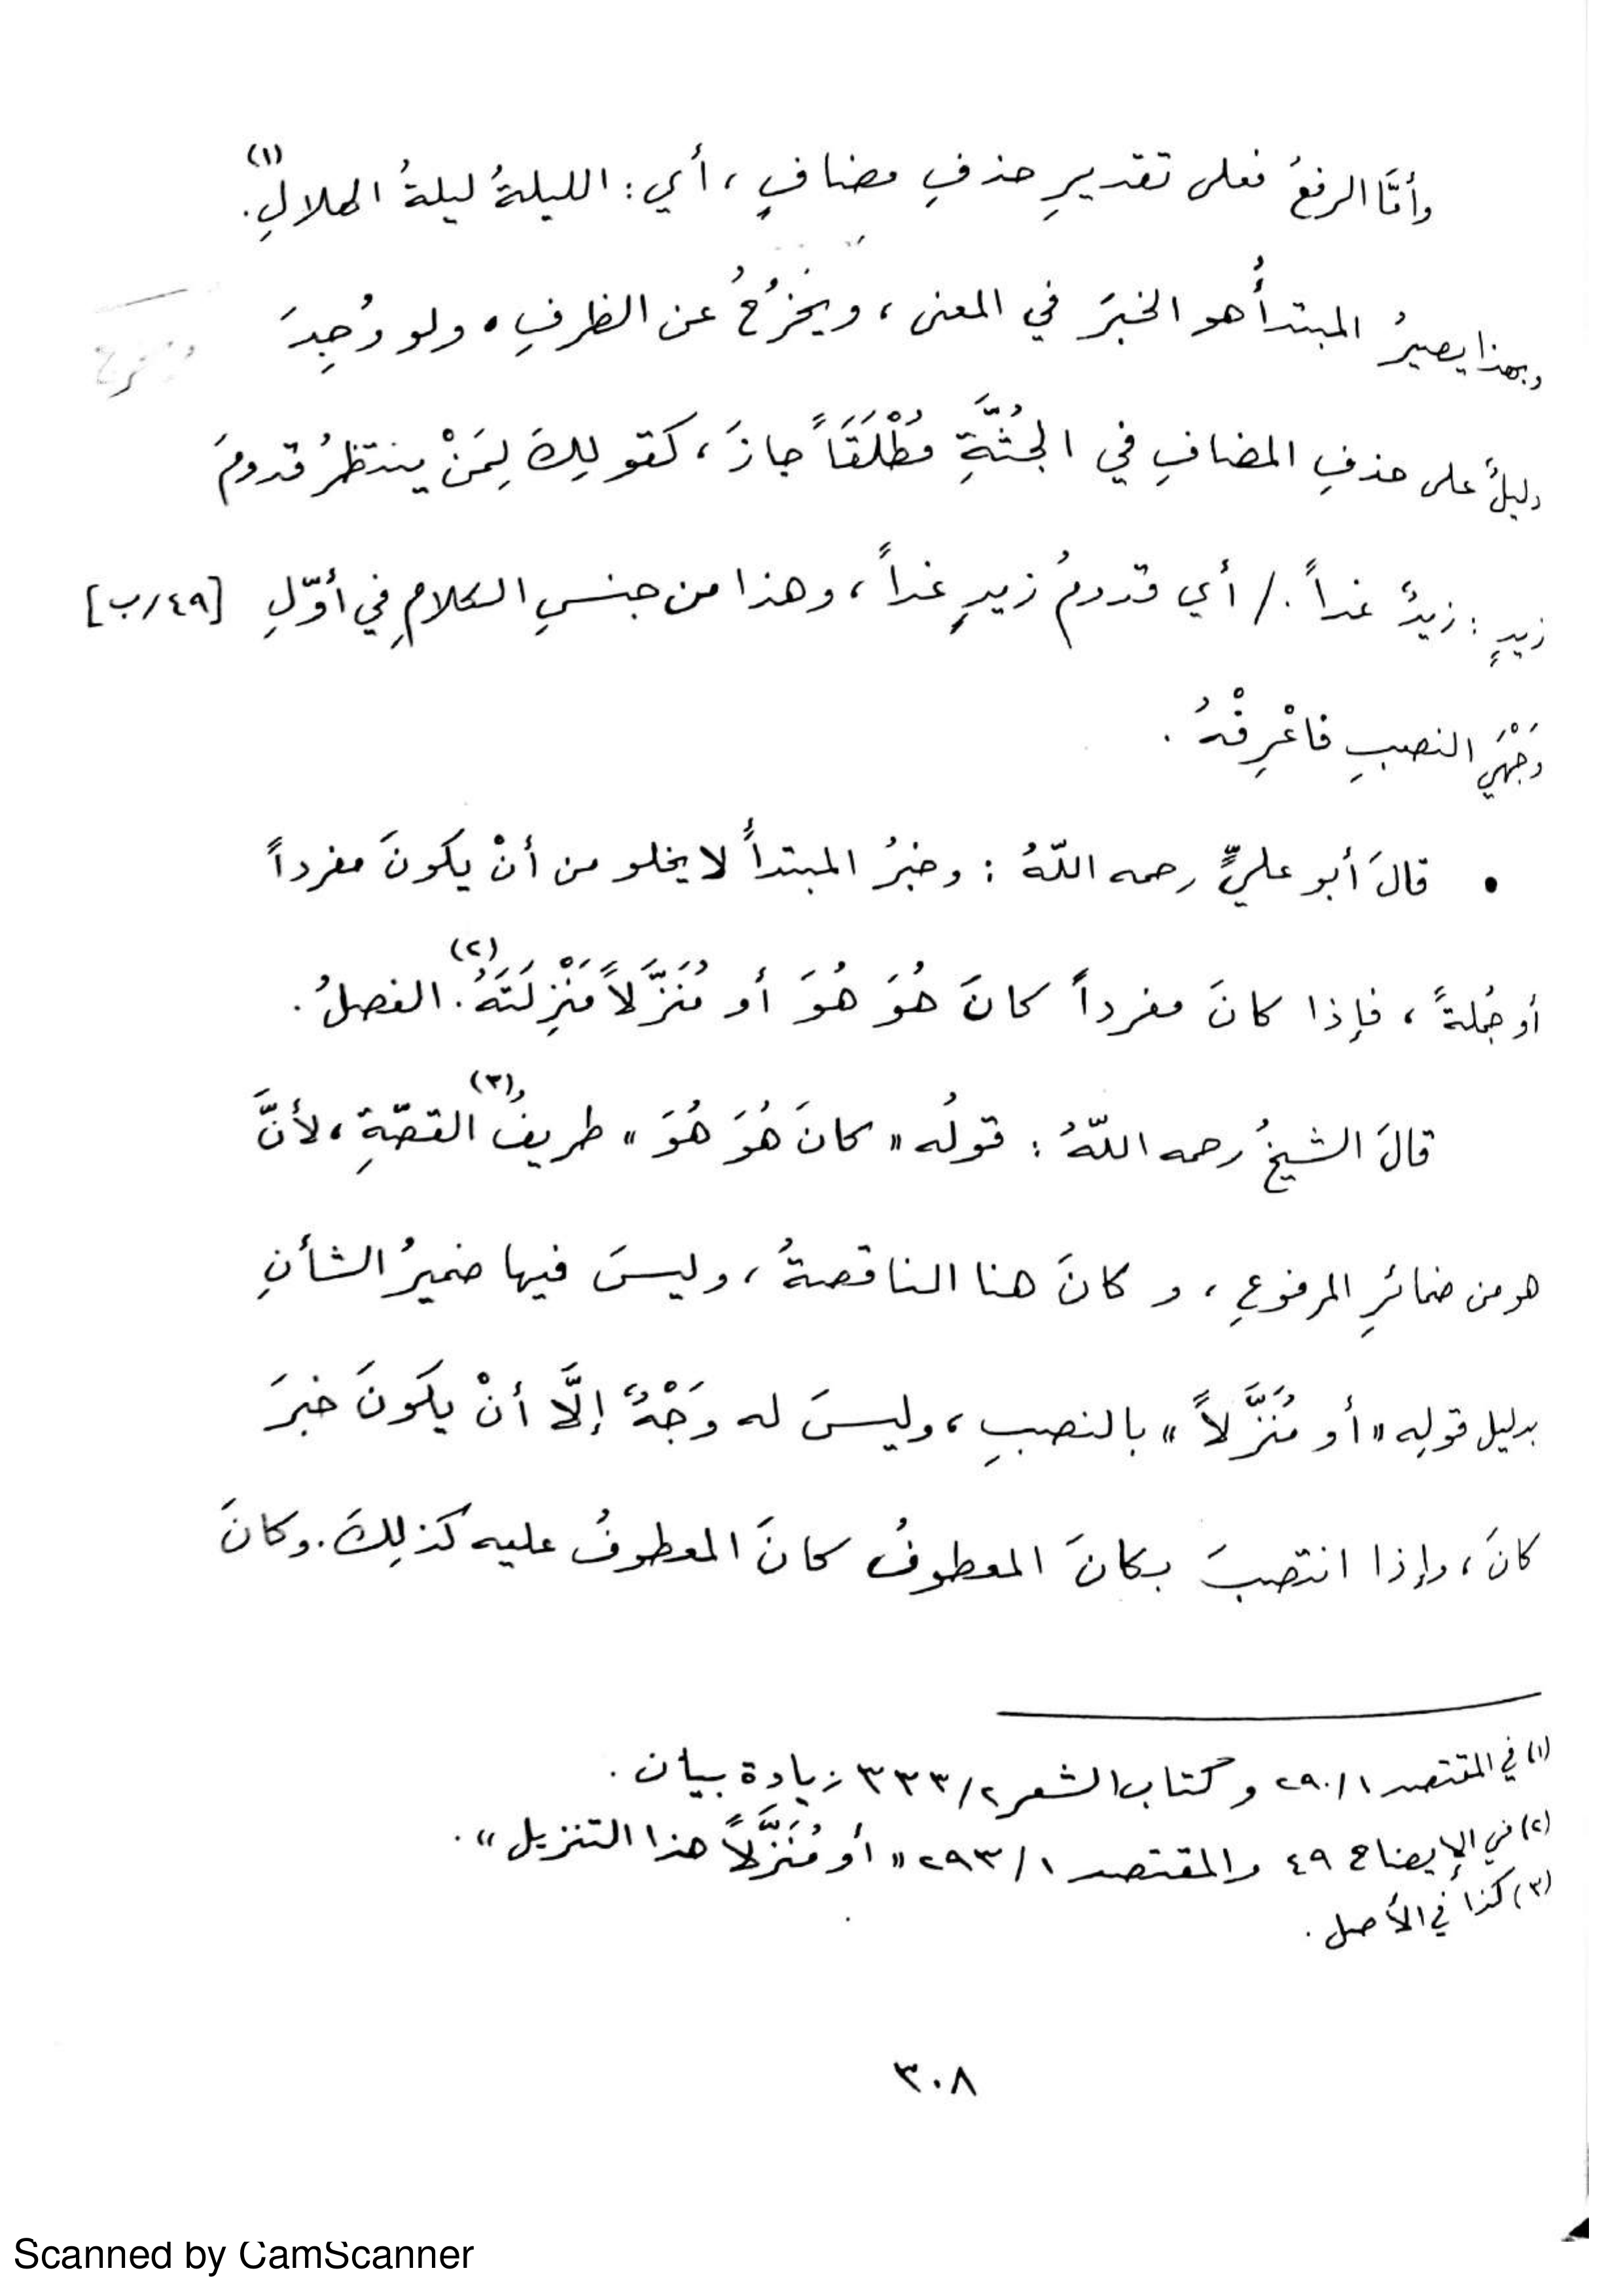 وأمَّا الرفعُ فعلى تقديرِ حذفِ مضافٍ ، أي : الليلةُ ليلةُ الهلالِ(١) .
وبهذا يصيرُ المبتدأُ هو الخبرَ في المعنى ، ويَخْرُجُ عن الظرفِ . ولو وُجِدَ
دليلٌ على حذفِ المضافِ في الجُثَّةِ مُطْلَقَاً جازَ ، كقولِكَ لِمَنْ ينتظرُ قدومَ
زيدٍ : زيدٌ غداً . / أي قدومُ زيدٍ غداً ، وهذا من جنسِ الكلامِ في أوّلِ [٤٩/ب]
وَجْهَي النصبِ فاعْرِفْهُ .
• قالَ أبو عليٍّ رحمه اللّهُ : وخبرُ المبتدأ لا يخلو من أنْ يكونَ مفرداً
أو جُملةً ، فإذا كانَ مفرداً كانَ هُوَ هُوَ أو مُنَزَّلاً مَنْزِلَتَهُ(٢) . الفصلُ .
قالَ الشيخُ رحمه اللّهُ : قولُه « كانَ هُوَ هُوَ » طريفُ(٣) القصّةِ ، لأنَّ
هو من ضمائرِ المرفوعِ ، وكانَ هنا الناقصةُ ، وليسَ فيها ضميرُ الشأنِ
بدليل قولِه « أو مُنَزَّلاً » بالنصبِ ، وليسَ له وَجْهٌ إلَّا أنْ يكونَ خبرَ
كانَ ، وإذا انتصبَ بكانَ المعطوفُ كانَ المعطوفُ عليه كذلِكَ . وكانَ
(١) في المقتصد ٢٩٠/١ وكتاب الشعر ٣٣٣/٢ زيادة بيان .
(٢) في الإيضاح ٤٩ والمقتصد ٢٩٣/١ « أو مُنَزَّلاً هذا التنزيل » .
(٣) كذا في الأصل .
٣٠٨
Scanned by CamScanner